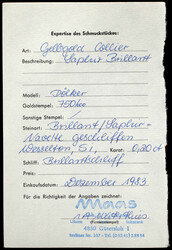 Expertise des Schmuckstückes:
Art: Gelbgold Collier
Beschreibung: Saphir Brillant
Modell: Döcker
Goldstempel: 750/oo
Sonstige Stempel: /
Steinart: Brillant/Saphir-
Navette Geschliffen
Wesselton, SI, Karat: 0.20 ct
Schliff: Brillantschliff
Preis:
Einkaufsdatum: Dezember 1983
Für die Richtigkeit der Angaben zeichnet:
Maas
(Firmenstempel)
4830 Gütersloh 1